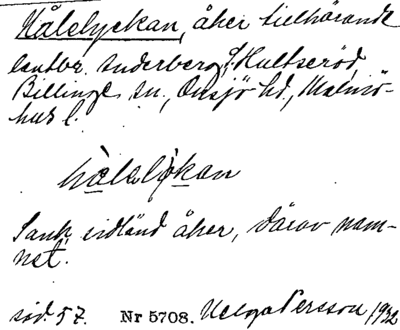 Hålelyckan, åker tillhörande
lantbr. Anderberg, Hultseröd,
Billinge sn, Onsjö hd, Malmö-
hus l.
hålelykan
Sank, sidländ åker, därav nam-
net.
sid. 57. Nr 5708. Helga Persson 1932